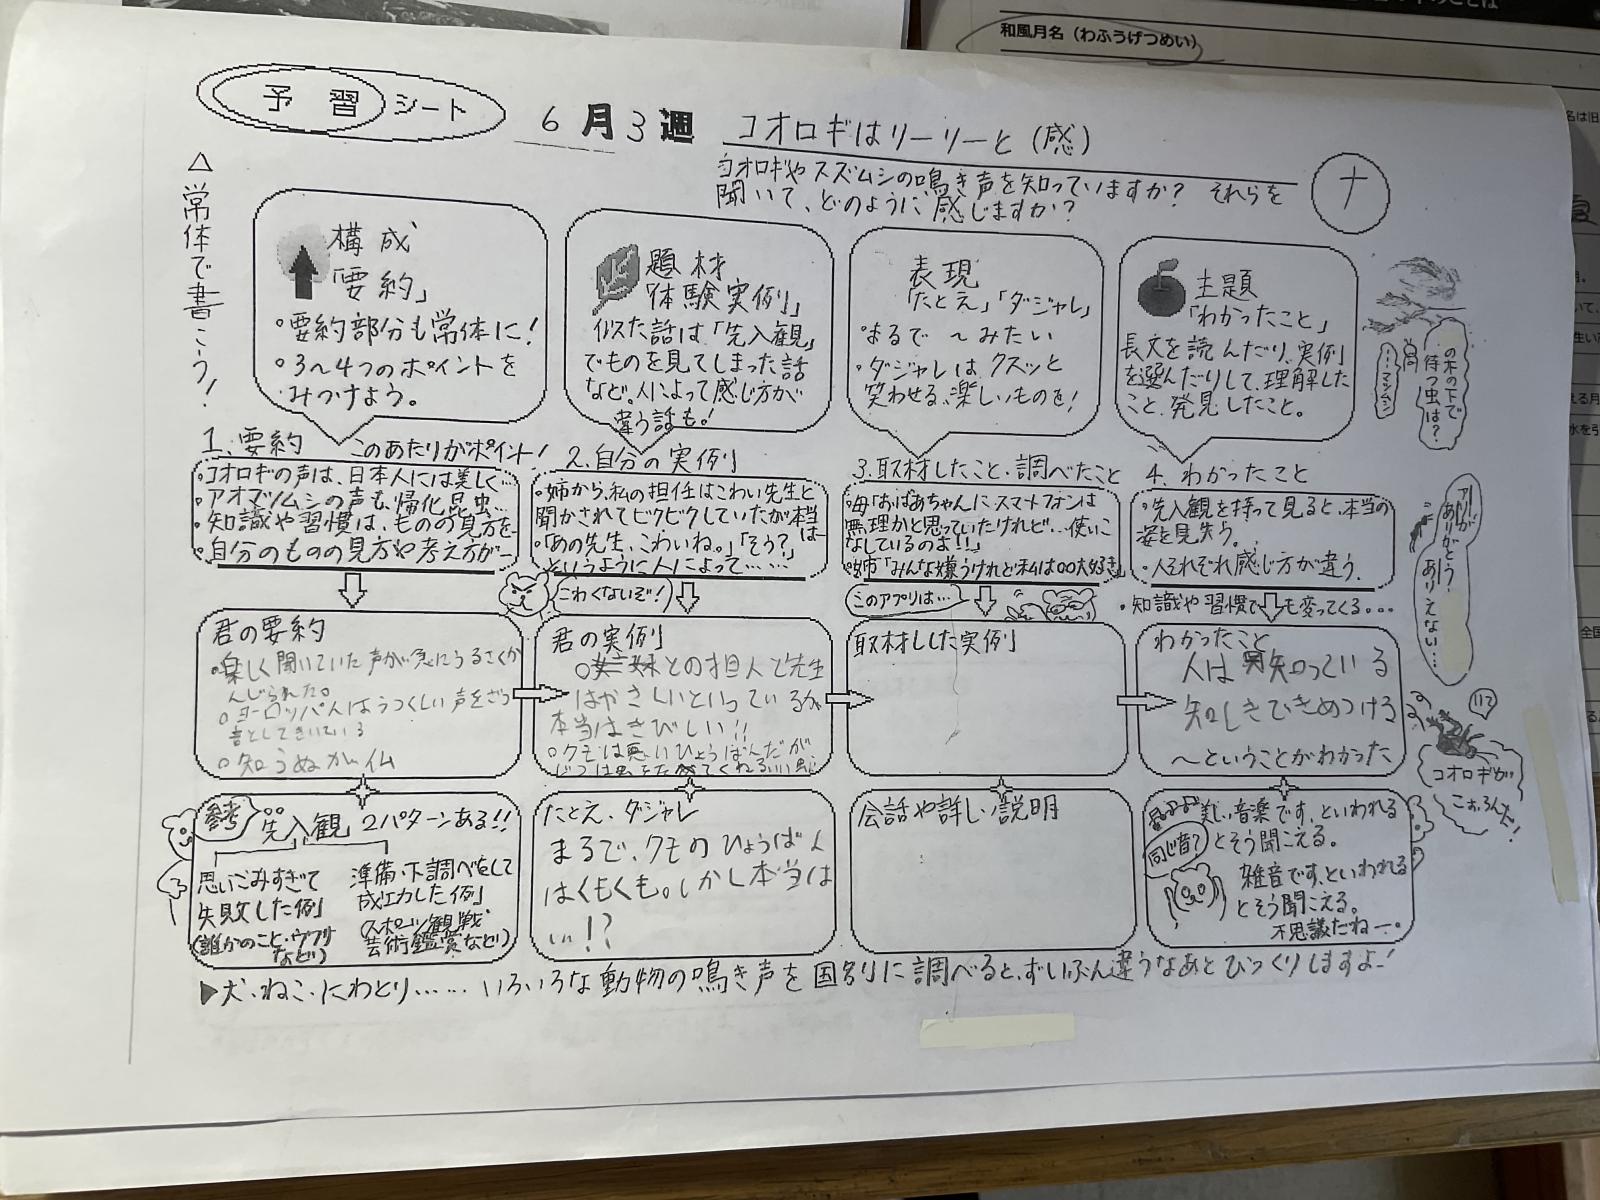 和風月名（わふうげつめい）
予習シート
6月3週 コオロギはリーリーと（感）
コオロギやスズムシの鳴き声を知っていますか？ それらを
聞いて、どのように感じますか？
ナ
△常体で書こう！
構成
「要約」
・要約部分も常体に！
・3〜4つのポイントを
みつけよう。
題材
「体験実例」
似た話は「先入観」
でものを見てしまった話
など。人によって感じ方が
違う話も！
表現
「たとえ」「ダジャレ」
・まるで〜みたい
・ダジャレは、クスッと
笑わせる、楽しいものを！
主題
「わかったこと」
長文を読んだり、実例
を選んだりして、理解した
こと、発見したこと。
の木の下で
待つ虫は？
…マツムシ
1.要約 このあたりがポイント！
・コオロギの声は、日本人には美しく…
・アオマツムシの声も、帰化昆虫…
・知識や習慣は、ものの見方を…
・自分のものの見方や考え方が…
2.自分の実例
・姉から、私の担任はこわい先生と
聞かされてビクビクしていたが本当は…
・「あの先生、こわいね。」「そう？」
というように人によって……
こわくないぞ！
3.取材したこと・調べたこと
・母「おばあちゃんにスマートフォンは
無理かと思っていたけれど…使いこ
なしているのよ！！」
・姉「みんな嫌うけれど私は〇〇大好き」
このアプリは…
4.わかったこと
・先入観を持って見ると、本当の
姿を見失う。
・人それぞれ感じ方が違う。
・知識や習慣でも変ってくる…
アリが
ありがとう
ありえない…
君の要約
・楽しく聞いていた声が急にうるさくか
んじられた。
○ヨーロッパ人はうつくしい声をざつ
音としてきいている
○知らぬが仏
君の実例
との担人で先生
はやさしいといっているが
本当はきびしい！！
○クモは悪いひょうばんだが、
取材した実例
わかったこと
人は知っている
知しきできめつける
〜ということがわかった
コオロギが
こおろんだ！
参考 先入観 2パターンある！！
思いこみすぎて
失敗した例
（誰かのこと・ウワサ
など）
準備・下調べをして
成功した例
（スポーツ観戦
芸術鑑賞など）
たとえ、ダジャレ
まるで、クモのひょうばん
はくもくも。しかし本当は
いい！？
会話や詳しい説明
美しい音楽です、といわれる
とそう聞こえる。
同じ音で
雑音です、といわれる
とそう聞こえる。
不思議だねー。
▶犬・ねこ・にわとり……いろいろな動物の鳴き声を国別に調べると、ずいぶん違うなあとびっくりしますよ！